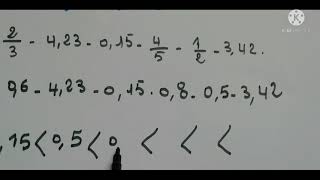 2/3 - 4,23 - 0,15 - 4/5 - 1/2 - 3,42.
0,6 - 4,23 - 0,15 - 0,8 - 0,5 - 3,42
,15 < 0,5 < 0, < < <